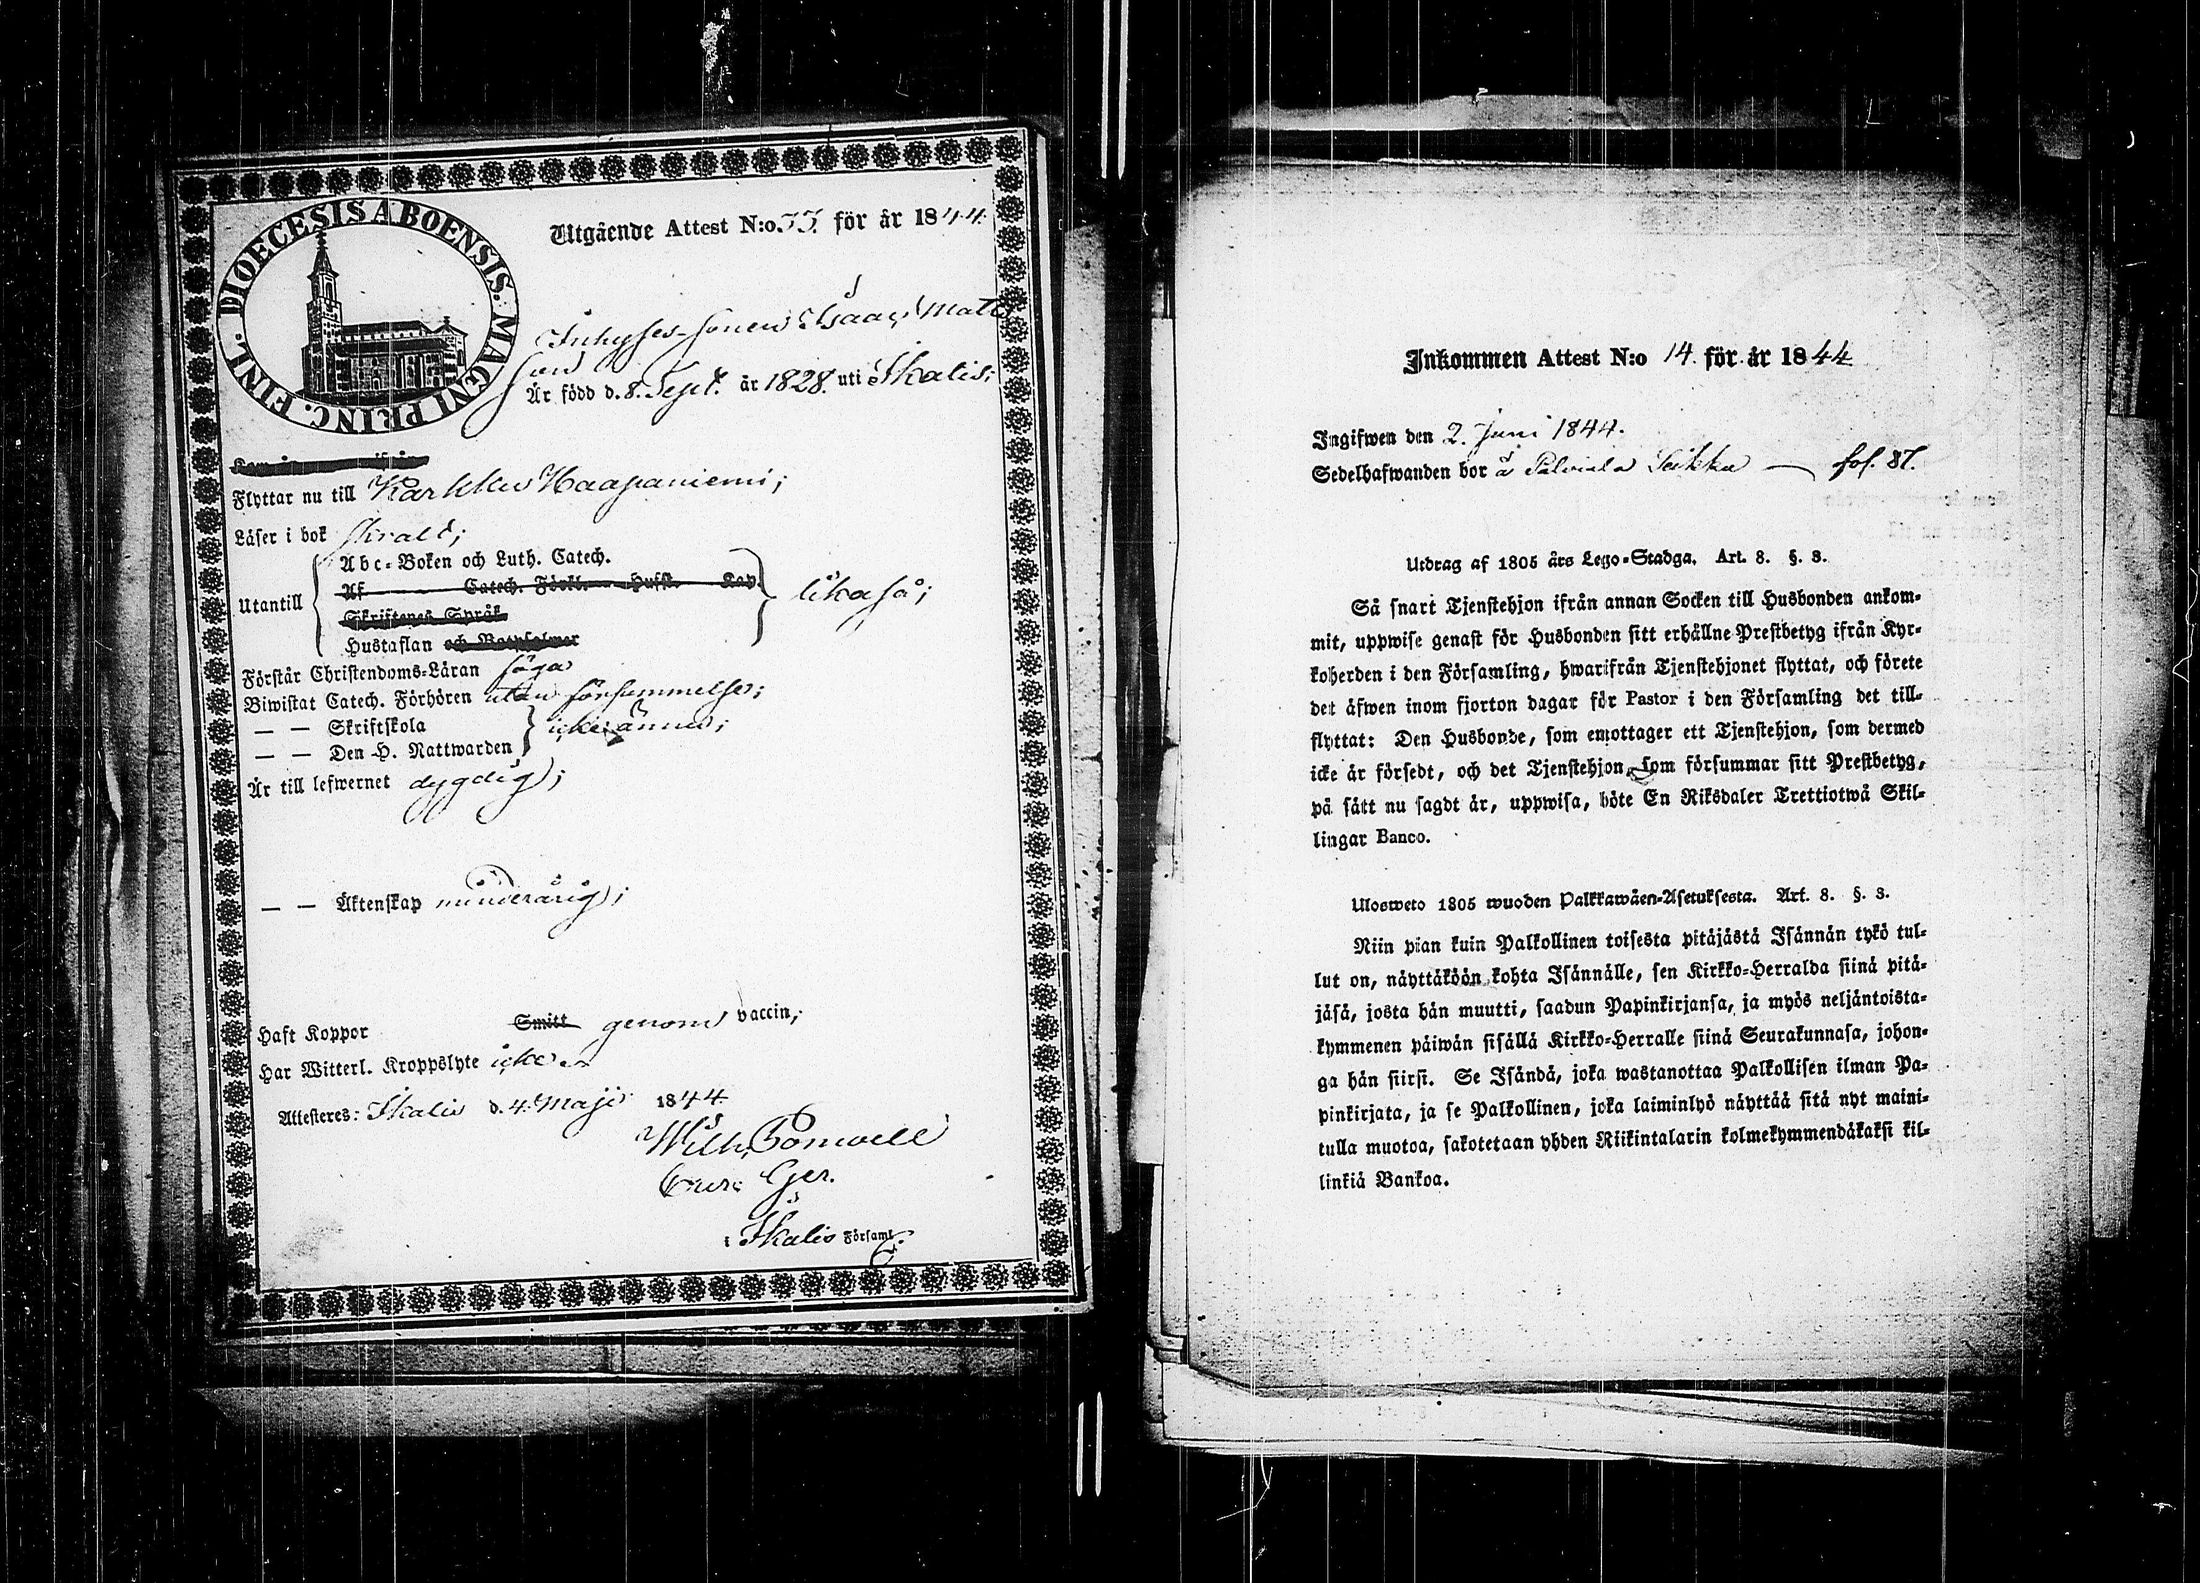 DIOECESIS ABOENSIS. MAGNI PRINC. FINL.
Utgående Attest N:o 33. för år 1844.
Inhyses-sonen Isaac Matts
son
Är född d. 8. Sept. år 1828. uti Ikalis;
Flyttar nu till Karkku Haapaniemi;
Läser i bok swalt;
Utantill
Abc-Boken och Luth. Catech.
Af Catech. Förkl. Husst. Kap.
Skriftenes Språk
Hustaflan och Botpsalmer
likaså;
Förstår Christendoms-Läran föga
Biwistat Catech. Förhören utan försummelse;
— — Skriftskola
— — Den H. Nattwarden
icke ännu;
Är till lefwernet dygdig;
— — Äktenskap minderårig;
Haft Koppor Smitt genom vaccin;
Har Witterl. Kroppslyte icke
Attesteras: Ikalis d. 4. Maji 1844
Wilh. Ponwell
i Ikalis Församl.
Inkommen Attest N:o 14. för år 1844
Ingifwen den 2. Juni 1844.
Sedelhafwanden bor å Palviala Seikka — fol. 87.
Utdrag af 1805 års Lego-Stadga. Art. 8. §. 3.
Så snart Tjenstehjon ifrån annan Socken till Husbonden ankom-
mit, uppwise genast för Husbonden sitt erhållne Prestbetyg ifrån Kyr-
koherden i den Församling, hwarifrån Tjenstehjonet flyttat, och förete
det äfwen inom fjorton dagar för Pastor i den Församling det till-
flyttat: Den Husbonde, som emottager ett Tjenstehjon, som dermed
icke är försedt, och det Tjenstehjon, som försummar sitt Prestbetyg,
på sätt nu sagdt är, uppwisa, böte En Riksdaler Trettiotwå Skil-
lingar Banco.
Ulosweto 1805 wuoden Palkkawäen-Asetuksesta. Art. 8. §. 3.
Niin pian kuin Palkollinen toisesta pitäjästä Isännän tykö tul-
lut on, näyttäköön kohta Isännälle, sen Kirkko-Herralda siinä pitä-
jäsä, josta hän muutti, saadun Papinkirjansa, ja myös neljäntoista-
kymmenen päiwän sisällä Kirkko-Herralle siinä Seurakunnasa, johon-
ga hän siirsi. Se Isändä, joka wastanottaa Palkollisen ilman Pa-
pinkirjata, ja se Palkollinen, joka laiminlyö näyttää sitä nyt maini-
tulla muotoa, sakotetaan yhden Riikintalarin kolmekymmendäkaksi kil-
linkiä Bankoa.